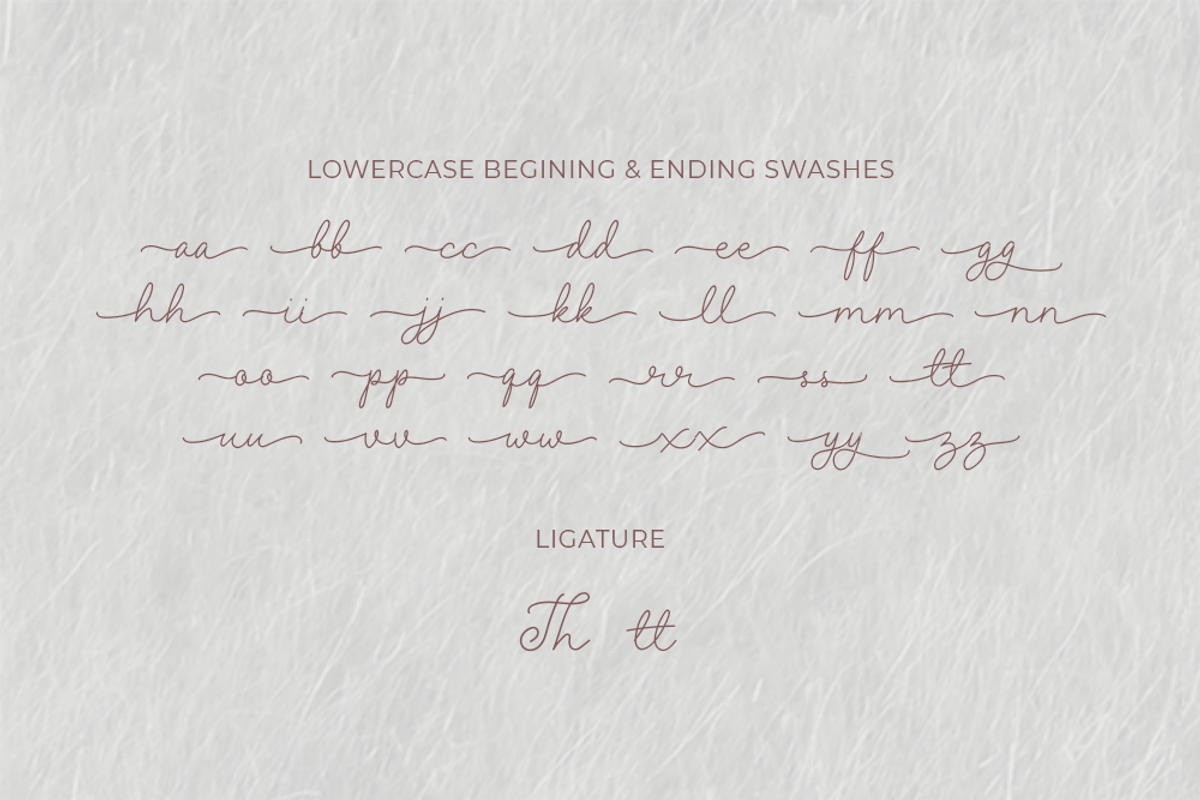 LOWERCASE BEGINING & ENDING SWASHES
aa bb cc dd ee ff gg
hh ii jj kk ll mm nn
oo pp qq rr ss tt
uu vv ww xx yy zz
LIGATURE
Th tt